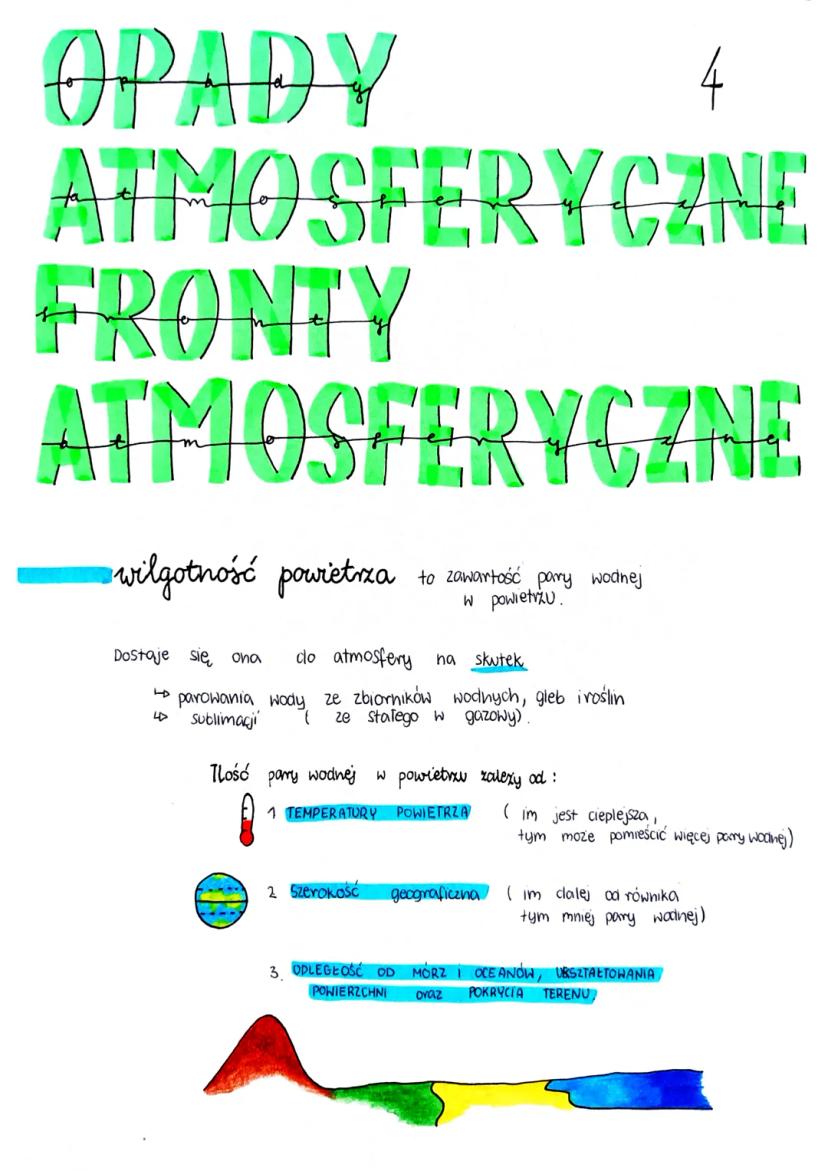 OPADY
opady
4
ATMOSFERYCZNE
atmosferyczne
FRONTY
fronty
ATMOSFERYCZNE
atmosferyczne
wilgotność powietrza to zawartość pary wodnej
w powietrzu.
Dostaje się ona do atmosfery na skutek
↳ parowania wody ze zbiorników wodnych, gleb i roślin
↳ sublimacji ( ze stałego w gazowy).
Ilość pary wodnej w powietrzu zależy od :
1 TEMPERATURY POWIETRZA ( im jest cieplejsza,
tym może pomieścić więcej pary wodnej)
2 szerokość geograficzna ( im dalej od równika
tym mniej pary wodnej)
3. ODLEGŁOŚĆ OD MÓRZ I OCEANÓW, UKSZTAŁTOWANIA
POWIERZCHNI oraz POKRYCIA TERENU.